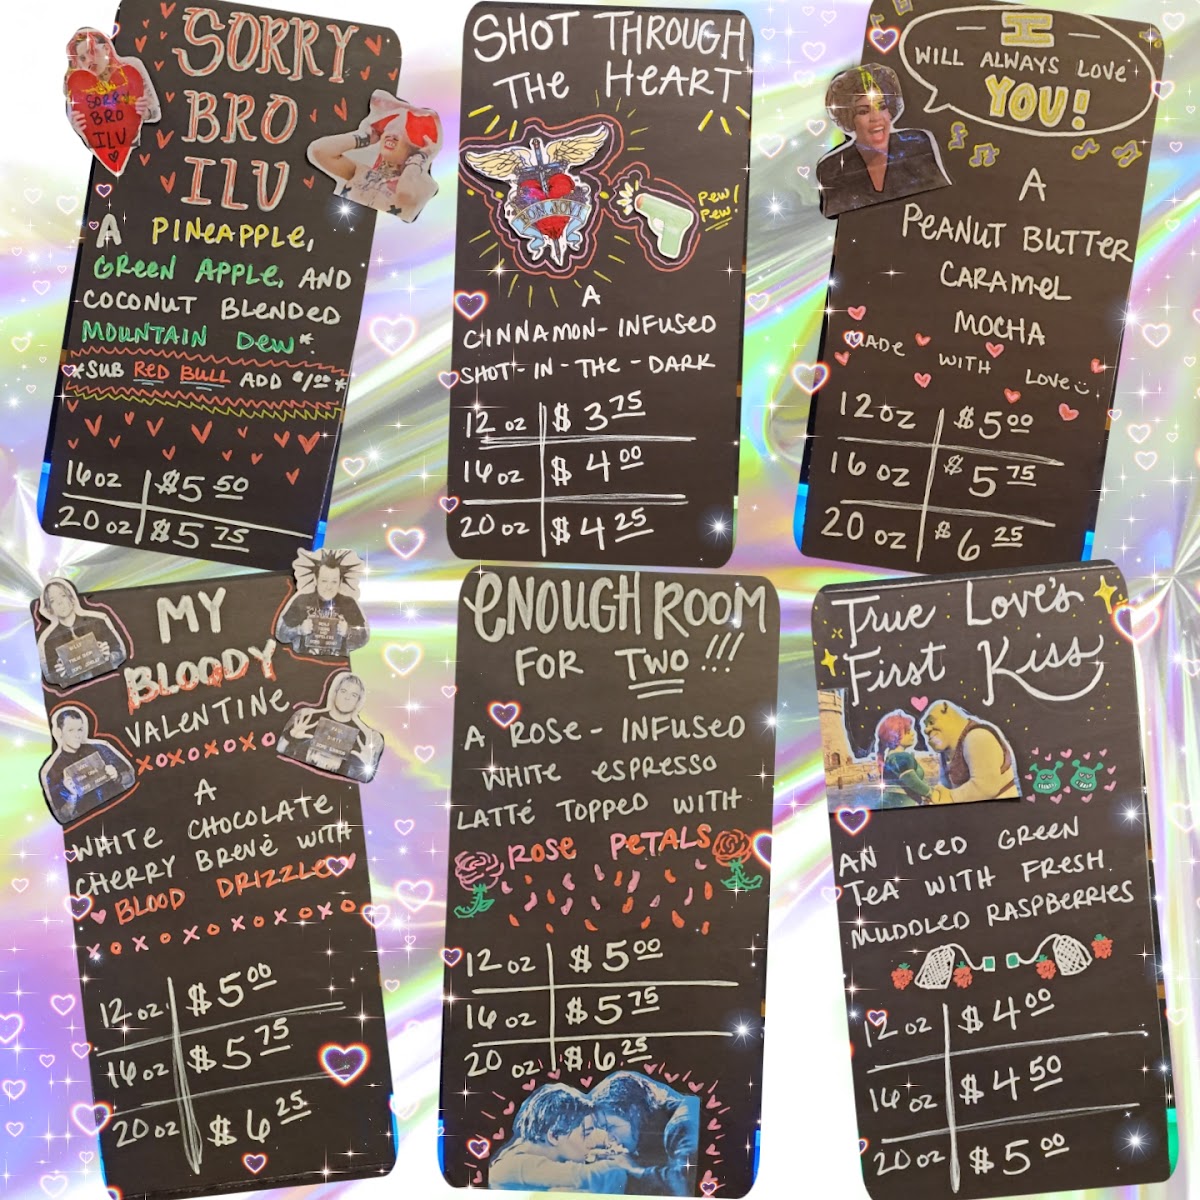 SORRY
BRO
ILU
SORRY
BRO
ILU
A PINEAPPLE,
GREEN APPLE, AND
COCONUT BLENDED
MOUNTAIN DEW*
*SUB RED BULL ADD $1.00*
16oz $5 50
20 oz $5 75
SHOT THROUGH
THE HEART
BON JOVI
PEW!
PEW!
A
CINNAMON-INFUSED
SHOT-IN-THE-DARK
12 oz $3 75
16 oz $4 00
20 oz $4 25
I
WILL ALWAYS LOVE
YOU!
A
PEANUT BUTTER
CARAMEL
MOCHA
MADE WITH LOVE
12 oz $5 00
16 oz $5 75
20 oz $6 25
MY
BLOODY
VALENTINE
XOXOXOXO
A
WHITE CHOCOLATE
CHERRY BREVÉ WITH
BLOOD DRIZZLE
XOXOXOXOXOXO
12 oz $5 00
16 oz $5 75
20 oz $6 25
ENOUGH ROOM
FOR TWO!!!
A ROSE-INFUSED
WHITE ESPRESSO
LATTÉ TOPPED WITH
ROSE PETALS
12 oz $5 00
16 oz $5 75
20 oz $6.25
True Love's
First Kiss
AN ICED GREEN
TEA WITH FRESH
MUDDLED RASPBERRIES
12 oz $4 00
16 oz $4 50
20 oz $5 00